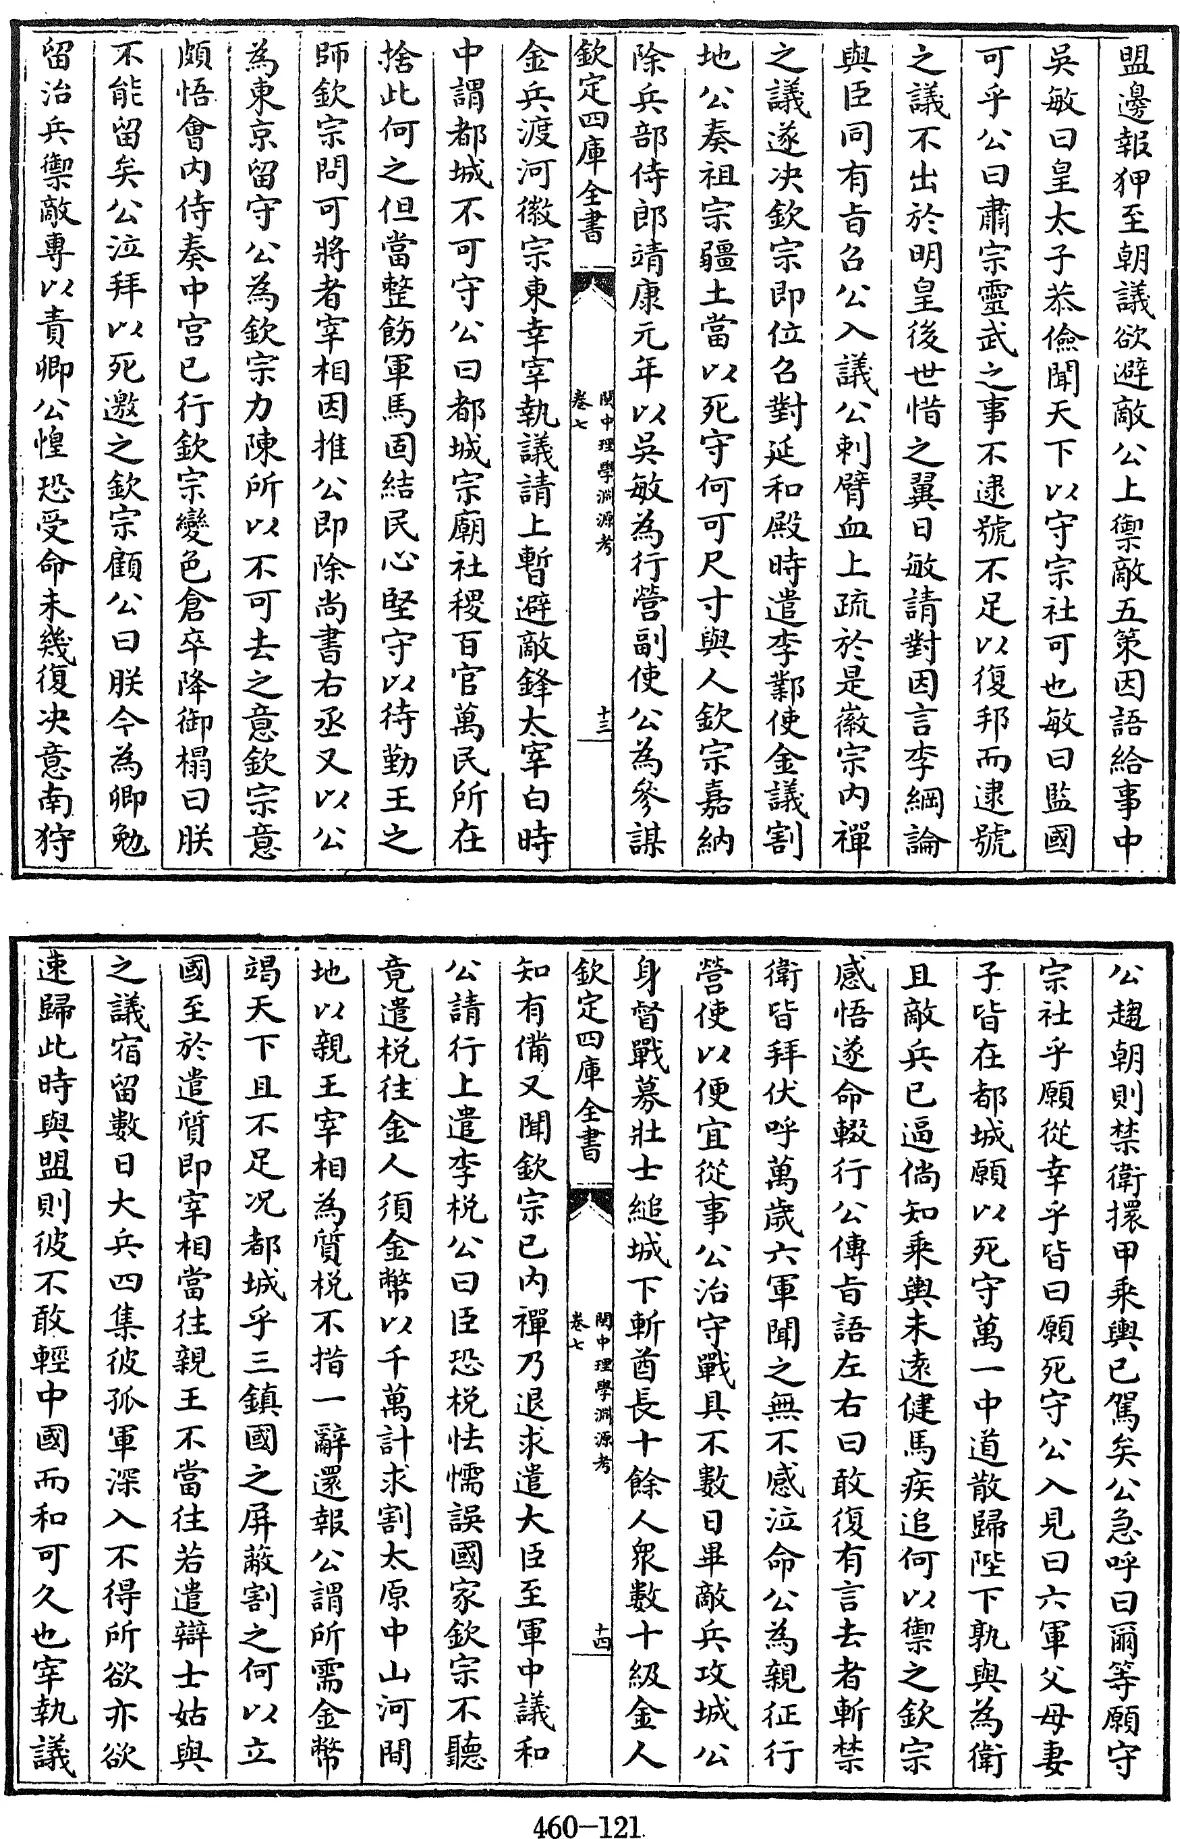 盟邊報狎至朝議欲避敵公上禦敵五策因語給事中
吳敏曰皇太子恭儉聞天下以守宗社可也敏曰監國
可乎公曰肅宗靈武之事不建號不足以復邦而建號
之議不出於明皇後世惜之翼日敏請對因言李綱論
與臣同有旨召公入議公刺臂血上疏於是徽宗內禪
之議遂決欽宗即位召對延和殿時遣李鄴使金議割
地公奏祖宗疆土當以死守何可尺寸與人欽宗嘉納
除兵部侍郎靖康元年以吳敏為行營副使公為參謀
欽定四庫全書
閩中理學淵源考
卷七
十三
金兵渡河徽宗東幸宰執議請上暫避敵鋒太宰白時
中謂都城不可守公曰都城宗廟社稷百官萬民所在
捨此何之但當整飭軍馬固結民心堅守以待勤王之
師欽宗問可將者宰相因推公即除尚書右丞又以公
為東京留守公為欽宗力陳所以不可去之意欽宗意
頗悟會內侍奏中宮已行欽宗變色倉卒降御榻曰朕
不能留矣公泣拜以死邀之欽宗顧公曰朕今為卿勉
留治兵禦敵專以責卿公惶恐受命未幾復決意南狩
公趨朝則禁衛擐甲乘輿已駕矣公急呼曰爾等願守
宗社乎願從幸乎皆曰願死守公入見曰六軍父母妻
子皆在都城願以死守萬一中道散歸陛下孰與為衛
且敵兵已逼倘知乘輿未遠健馬疾追何以禦之欽宗
感悟遂命輟行公傳旨語左右曰敢復有言去者斬禁
衛皆拜伏呼萬歲六軍聞之無不感泣命公為親征行
營使以便宜從事公治守戰具不數日畢敵兵攻城公
身督戰募壯士縋城下斬酋長十餘人眾數十級金人
欽定四庫全書
閩中理學淵源考
卷七
十四
知有備又聞欽宗已內禪乃退求遣大臣至軍中議和
公請行上遣李梲公曰臣恐梲怯懦誤國家欽宗不聽
竟遣梲往金人須金幣以千萬計求割太原中山河間
地以親王宰相為質梲不措一辭還報公謂所需金幣
竭天下且不足況都城乎三鎮國之屏蔽割之何以立
國至於遣質即宰相當往親王不當往若遣辯士姑與
之議宿留數日大兵四集彼孤軍深入不得所欲亦欲
速歸此時與盟則彼不敢輕中國而和可久也宰執議
460-121